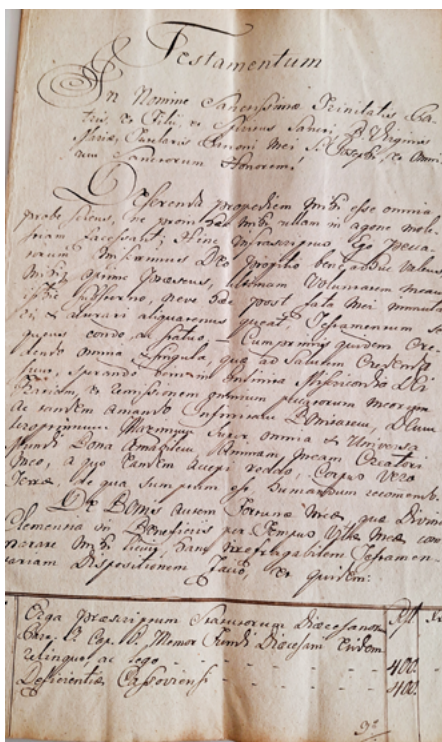 Testamentum
In Nomine Sanctissimae Trinitatis Pa-
tris, et Filii, et Spiritus Sancti, B. Virginis
Mariae, Tutelaris Patroni Mei S. Josephi, et Omni-
um Sanctorum Honorem!
Deserenda propediem mihi esse omnia
probe sciens, ne prom hae mihi ullam in agone mole-
stiam facessant; Hinc infrascriptus Ego pecca-
torum infirmus DEO propitio bene adhuc valens
mihi apprime praesens, ultimam Voluntatem meam
isthic subscribo, neve hae post fata mei immuta-
ri & alterari aliquatenus queat, Testamentum se-
quens condo ac statuo, Cumprimis quidem Cre-
dendo omnia & singula, quae ad Salutem Credenda
sunt, sperando veniam infinita Misericordia DEI
Gratiam, et remissionem omnium peccatorum meorum
ac tandem amando infinitam Bonitatem, DEum
teroptimum Maximum super omnia & Universa
Mundi Bona amabilem, Animam meam Creatori
Meo, a quo eandem accepi reddo, Corpus vero
Terrae, de qua sumptum est humandum recommendo.
De Bonis autem Fortunae Meae, quae Divina
Clementia in Beneficiis per Tempus Vitae Meae com-
parare mihi licuit, hanc irrefragabilem Testamen-
tariam Dispositionem facio, et quidem:
Rft Xr
Erga praescriptum Statutorum Dioecesanorum
Fundi Dioecesani Eidem
relinquo, ac lego - - - - - - 400.
Deficientiae Cassoviensi - - - - - - 400.